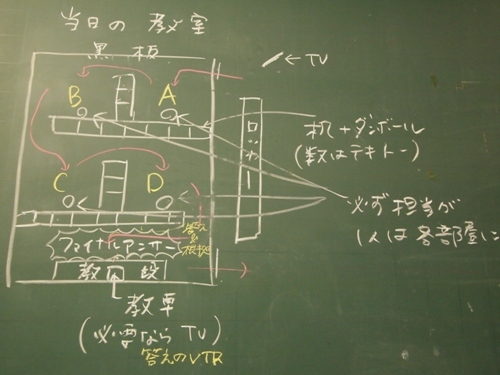 当日の教室
黒板
←TV
B
A
ロッカー
机+ダンボール
(数はテキトー)
C
D
必ず担当が
1人は各部屋に
答え
&
根拠
ファイナルアンサー
教卓
(必要ならTV)
答えのVTR